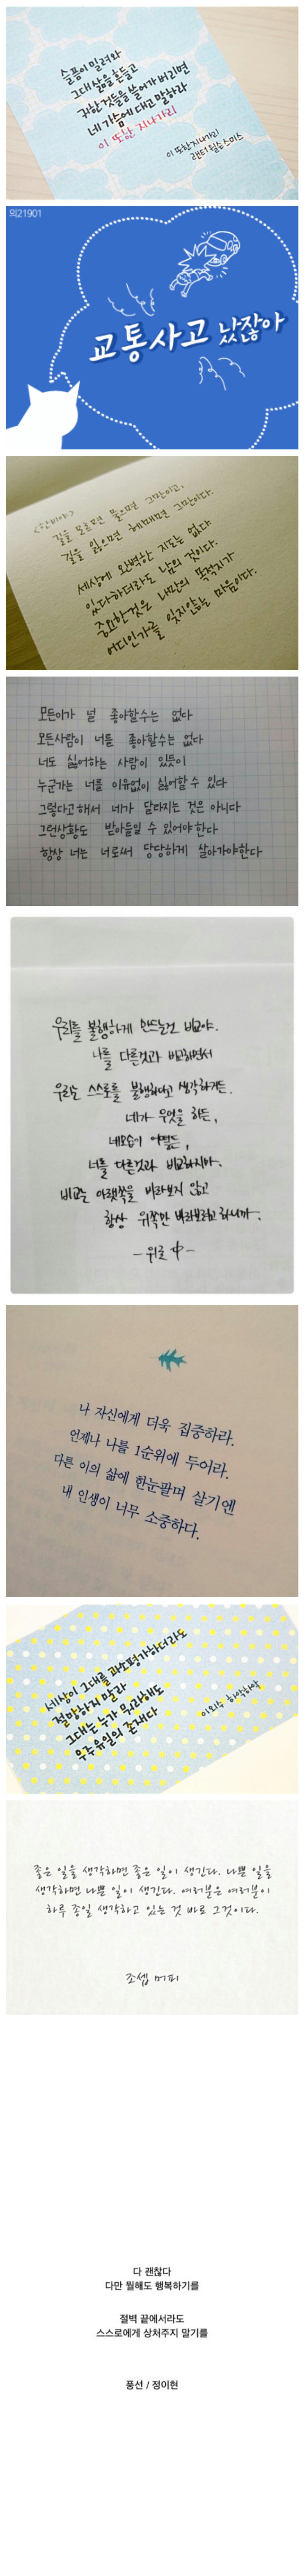 슬픔이 밀려와
그대 삶을 흔들고
귀한 것들을 쓸어가 버리면
네 가슴에 대고 말하라
이 또한 지나가리
이 또한 지나가리
랜터 윌슨 스미스
의21901
교통사고 났잖아
길을 모르면 물으면 그만이고,
길을 잃으면 헤매면 그만이다.
세상에 완벽한 지도는 없다
있다하더라도 남의 것이다.
중요한것은 나만의 목적지가
어디인가를 잊지않는 마음이다.
모든이가 널 좋아할수는 없다
모든사람이 너를 좋아할수는 없다
너도 싫어하는 사람이 있듯이
누군가는 너를 이유없이 싫어할 수 있다
그렇다고해서 네가 달라지는 것은 아니다
그런상황도 받아들일 수 있어야한다
항상 너는 너로써 당당하게 살아가야한다
우리를 불행하게 만드는건 비교야.
나를 다른것과 비교하면서
우리는 스스로를 불행하다고 생각하거든.
네가 무엇을 하든,
네모습이 어떻든,
너를 다른것과 비교하지마.
비교는 아랫쪽을 바라보지 않고
항상 위쪽만 바라보려고 하니까.
나 자신에게 더욱 집중하라.
언제나 나를 1순위에 두어라.
다른 이의 삶에 한눈팔며 살기엔
내 인생이 너무 소중하다.
세상이 그대를 과소평가하더라도
절망하지 말라
그대는 누가 뭐라해도
우주 유일의 존재다
이외수 하악하악
좋은 일을 생각하면 좋은 일이 생긴다. 나쁜 일을
생각하면 나쁜 일이 생긴다. 여러분은 여러분이
하루 종일 생각하고 있는 것 바로 그것이다.
조셉 머피
다 괜찮다
다만 뭘해도 행복하기를
절벽 끝에서라도
스스로에게 상처주지 말기를
풍선 / 정이현